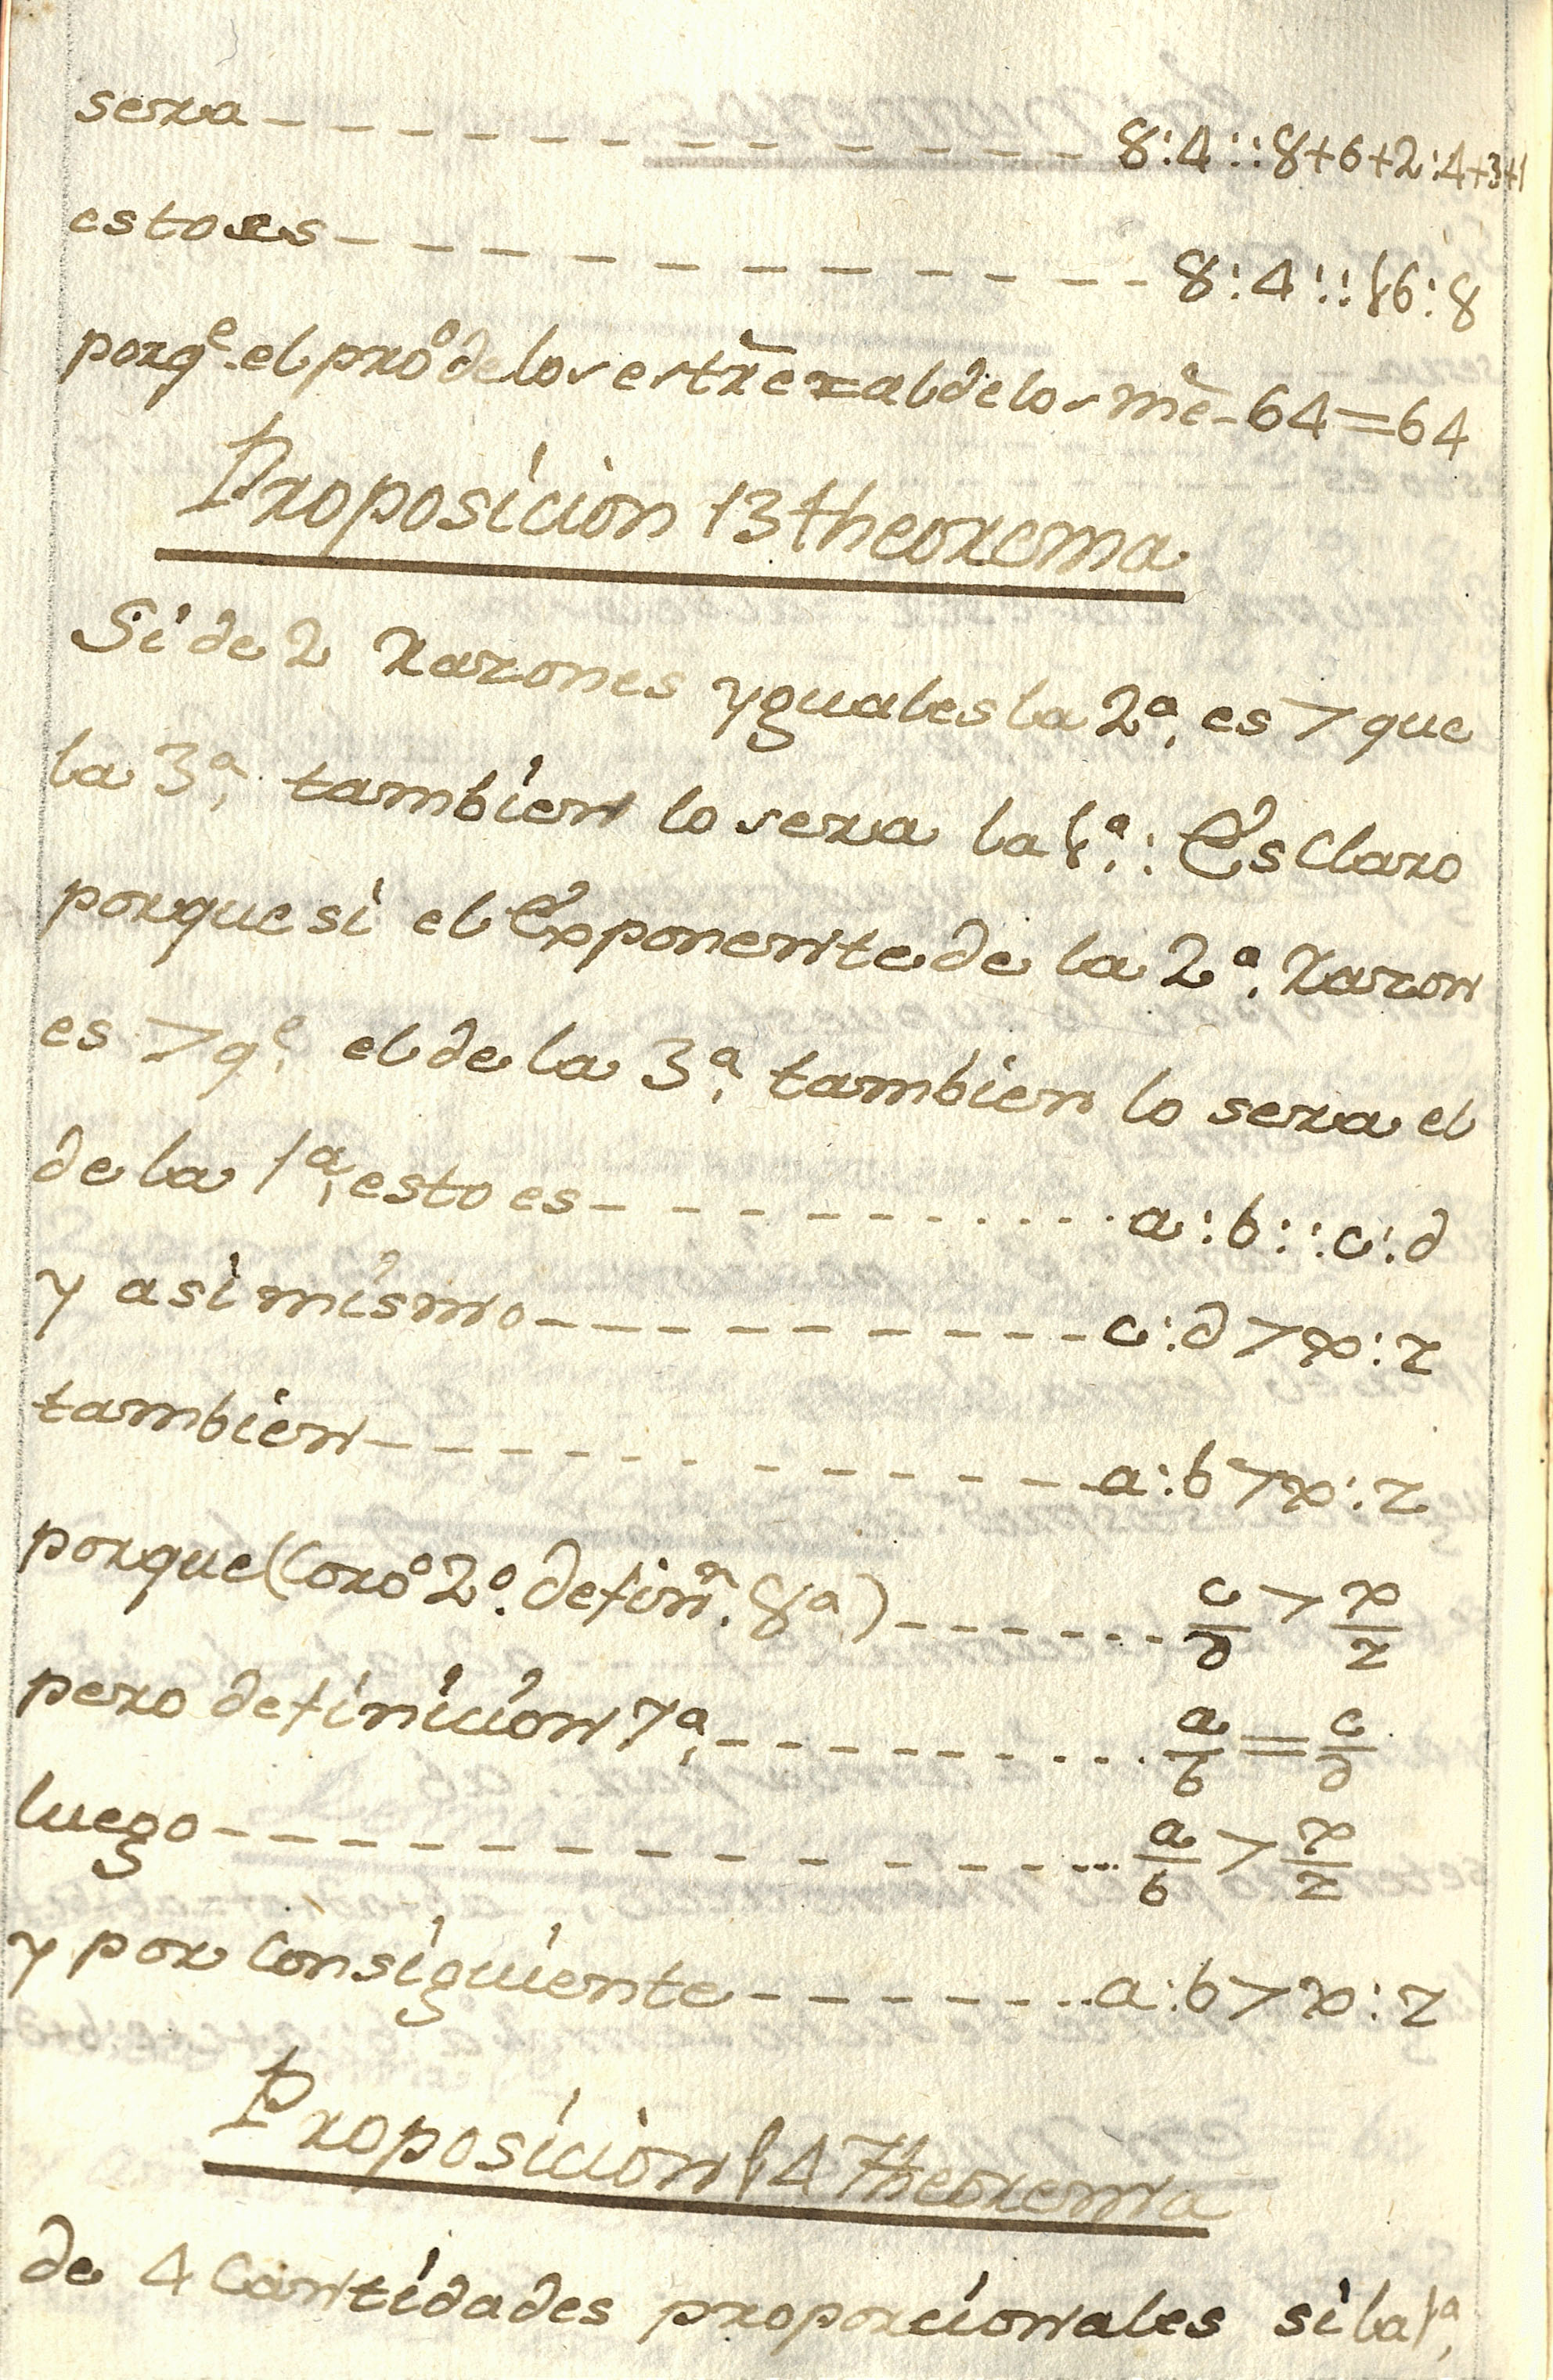 sera - - - - - - - - - - - - - 8:4::8+6+2:4+3+1
esto es - - - - - - - - - - - 8:4::16:8
porq.e el pro.o de los extrẽ = al de los mẽ - 64=64
Proposicion 13 theorema
Si de 2 Razones yguales la 2.a es > que
la 3.a tambien lo sera la 1.a: Es Claro
porque si el Exponente de la 2.a Razon
es > q.e el de la 3.a tambien lo sera el
de la 1.a esto es - - - - - - - - - a:b::c:d
y asi mismo - - - - - - - - - - c:d>x:z
tambien - - - - - - - - - - - a:b>x:z
porque (Coro.o 2.o defin.n 8.a) - - - - - - c/d > x/z
pero definicion 7.a - - - - - - - - a/b = c/d
luego - - - - - - - - - - - - - a/b > x/z
y por Consiguiente - - - - - - - a:b>x:z
Proposicion 14 Theorema
de 4 Cantidades proporcionales si la 1.a